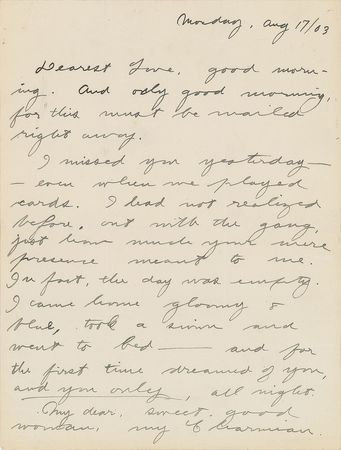 Monday, Aug 17/03
Dearest Love, good morn-
ing. And only good morning,
for this must be mailed
right away.
I missed you yesterday—
— even when we played
cards. I had not realized
before, out with the gang,
just how much your mere
presence meant to me.
In fact, the day was empty.
I came home gloomy &
blue, took a swim and
went to bed — and for
the first time dreamed of you,
and you only, all night.
My dear, sweet, good
woman, my Charmian.